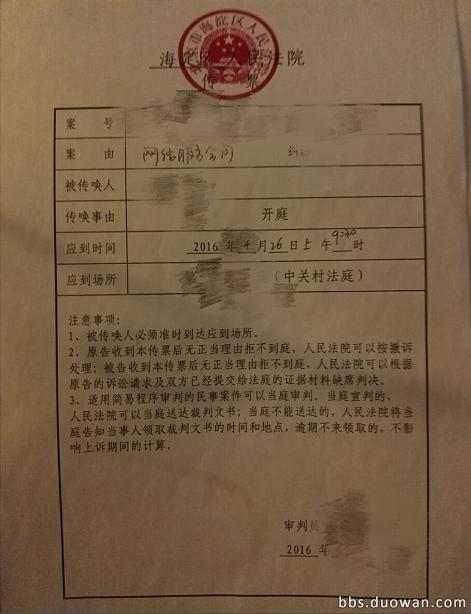 海淀区人民法院
传票
案号
案由 网络服务合同 纠纷
被传唤人
传唤事由 开庭
应到时间 2016年4月26日上午9:30时
应到场所 第 (中关村法庭)
注意事项：
1、被传唤人必须准时到达应到场所。
2、原告收到本传票后无正当理由拒不到庭，人民法院可以按撤诉
处理；被告收到本传票后无正当理由拒不到庭，人民法院可以根据
原告的诉讼请求及双方已经提交给法庭的证据材料缺席判决。
3、适用简易程序审判的民事案件可以当庭审判。当庭宣判的，
人民法院可以当庭送达裁判文书；当庭不能送达的，人民法院将当
庭告知当事人领取裁判文书的时间和地点，逾期不来领取的，不影
响上诉期间的计算。
审判员
2016 年
bbs.duowan.com